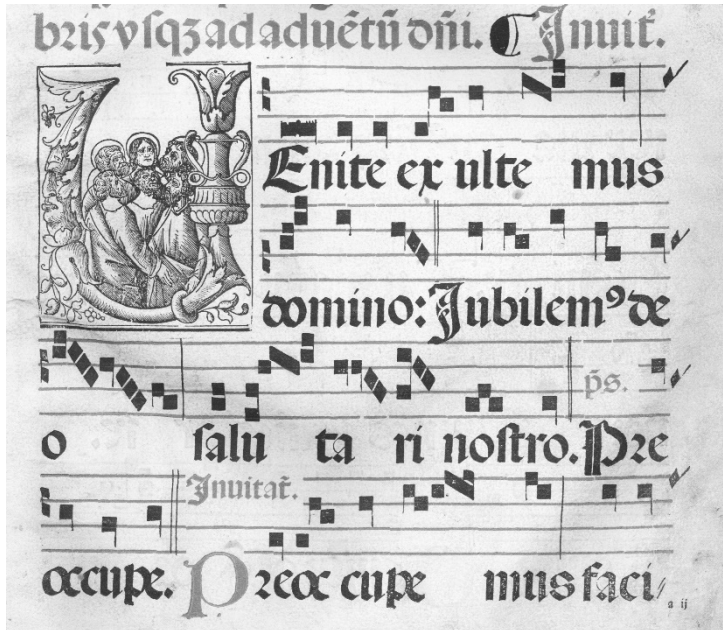 bris vsqz ad aduētū dñi. Inuit.
Enite exulte mus
domino: Jubilem⁹ de
p̄s.
o salu ta ri nostro. Pre
Inuitat.
occupe. Preoc cupe mus faci
a ij